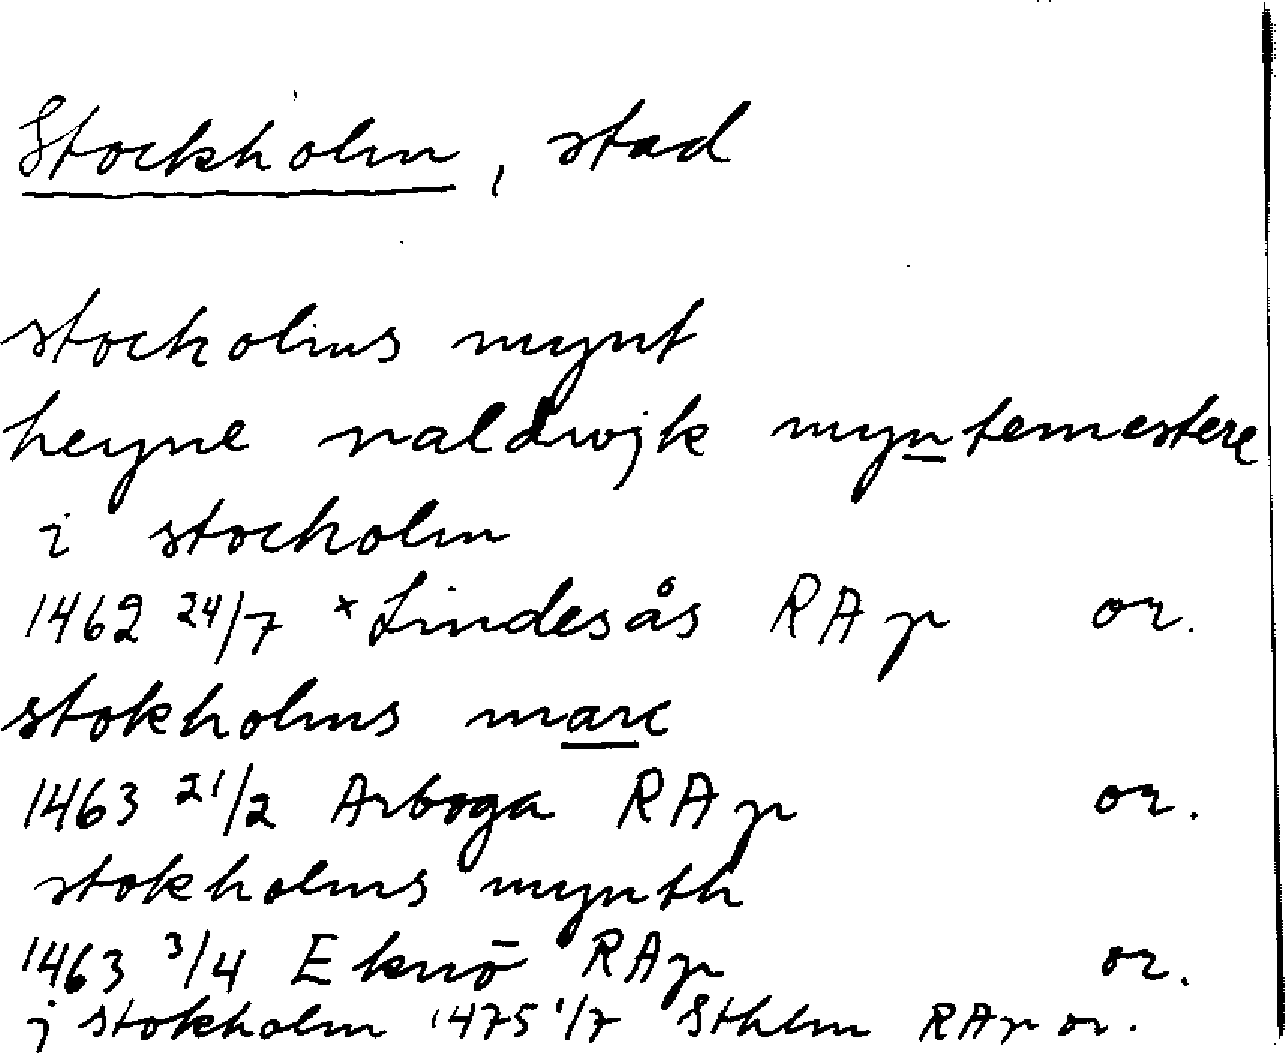 Stockholm, stad
stocholms mynt
heyne valdwijk myntemestere
i stocholm
1462 24/7 ˣLindesås RAp or.
stokholms marc
1463 21/2 Arboga RAp or.
stokholms mynth
1463 3/4 Eknö RAp or.
j stokholm 1475 1/7 Sthlm RAp or.